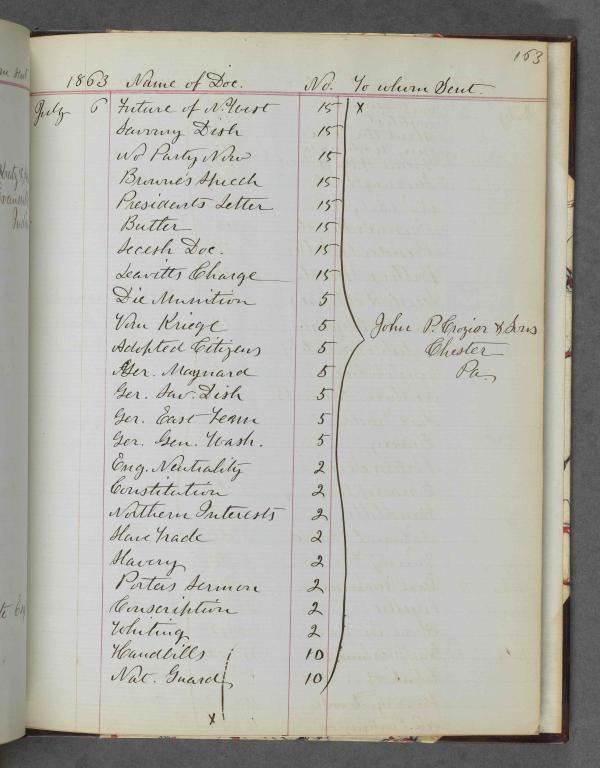 163
1863 Name of Doc. No. To whom Sent.
July 6 Future of N. West 15 x
Savoury Dish 15
No Party Now 15
Browne's Speech 15
Presidents Letter 15
Butler 15
Secesh Doc. 15
Leavitts Charge 15
Die Munition 5
Vom Kriege 5
Adopted Citizens 5 John P. Crozior & Sons
Ger. Maynard 5 Chester
Ger. Sav. Dish 5 Pa.
Ger. East Tenn 5
Ger. Gen. Wash. 5
Eng. Neutrality 2
Constitution 2
Northern Interests 2
Slave Trade 2
Slavery 2
Porters Sermon 2
Conscription 2
Whiting 2
Handbills 10
Nat. Guard 10
x